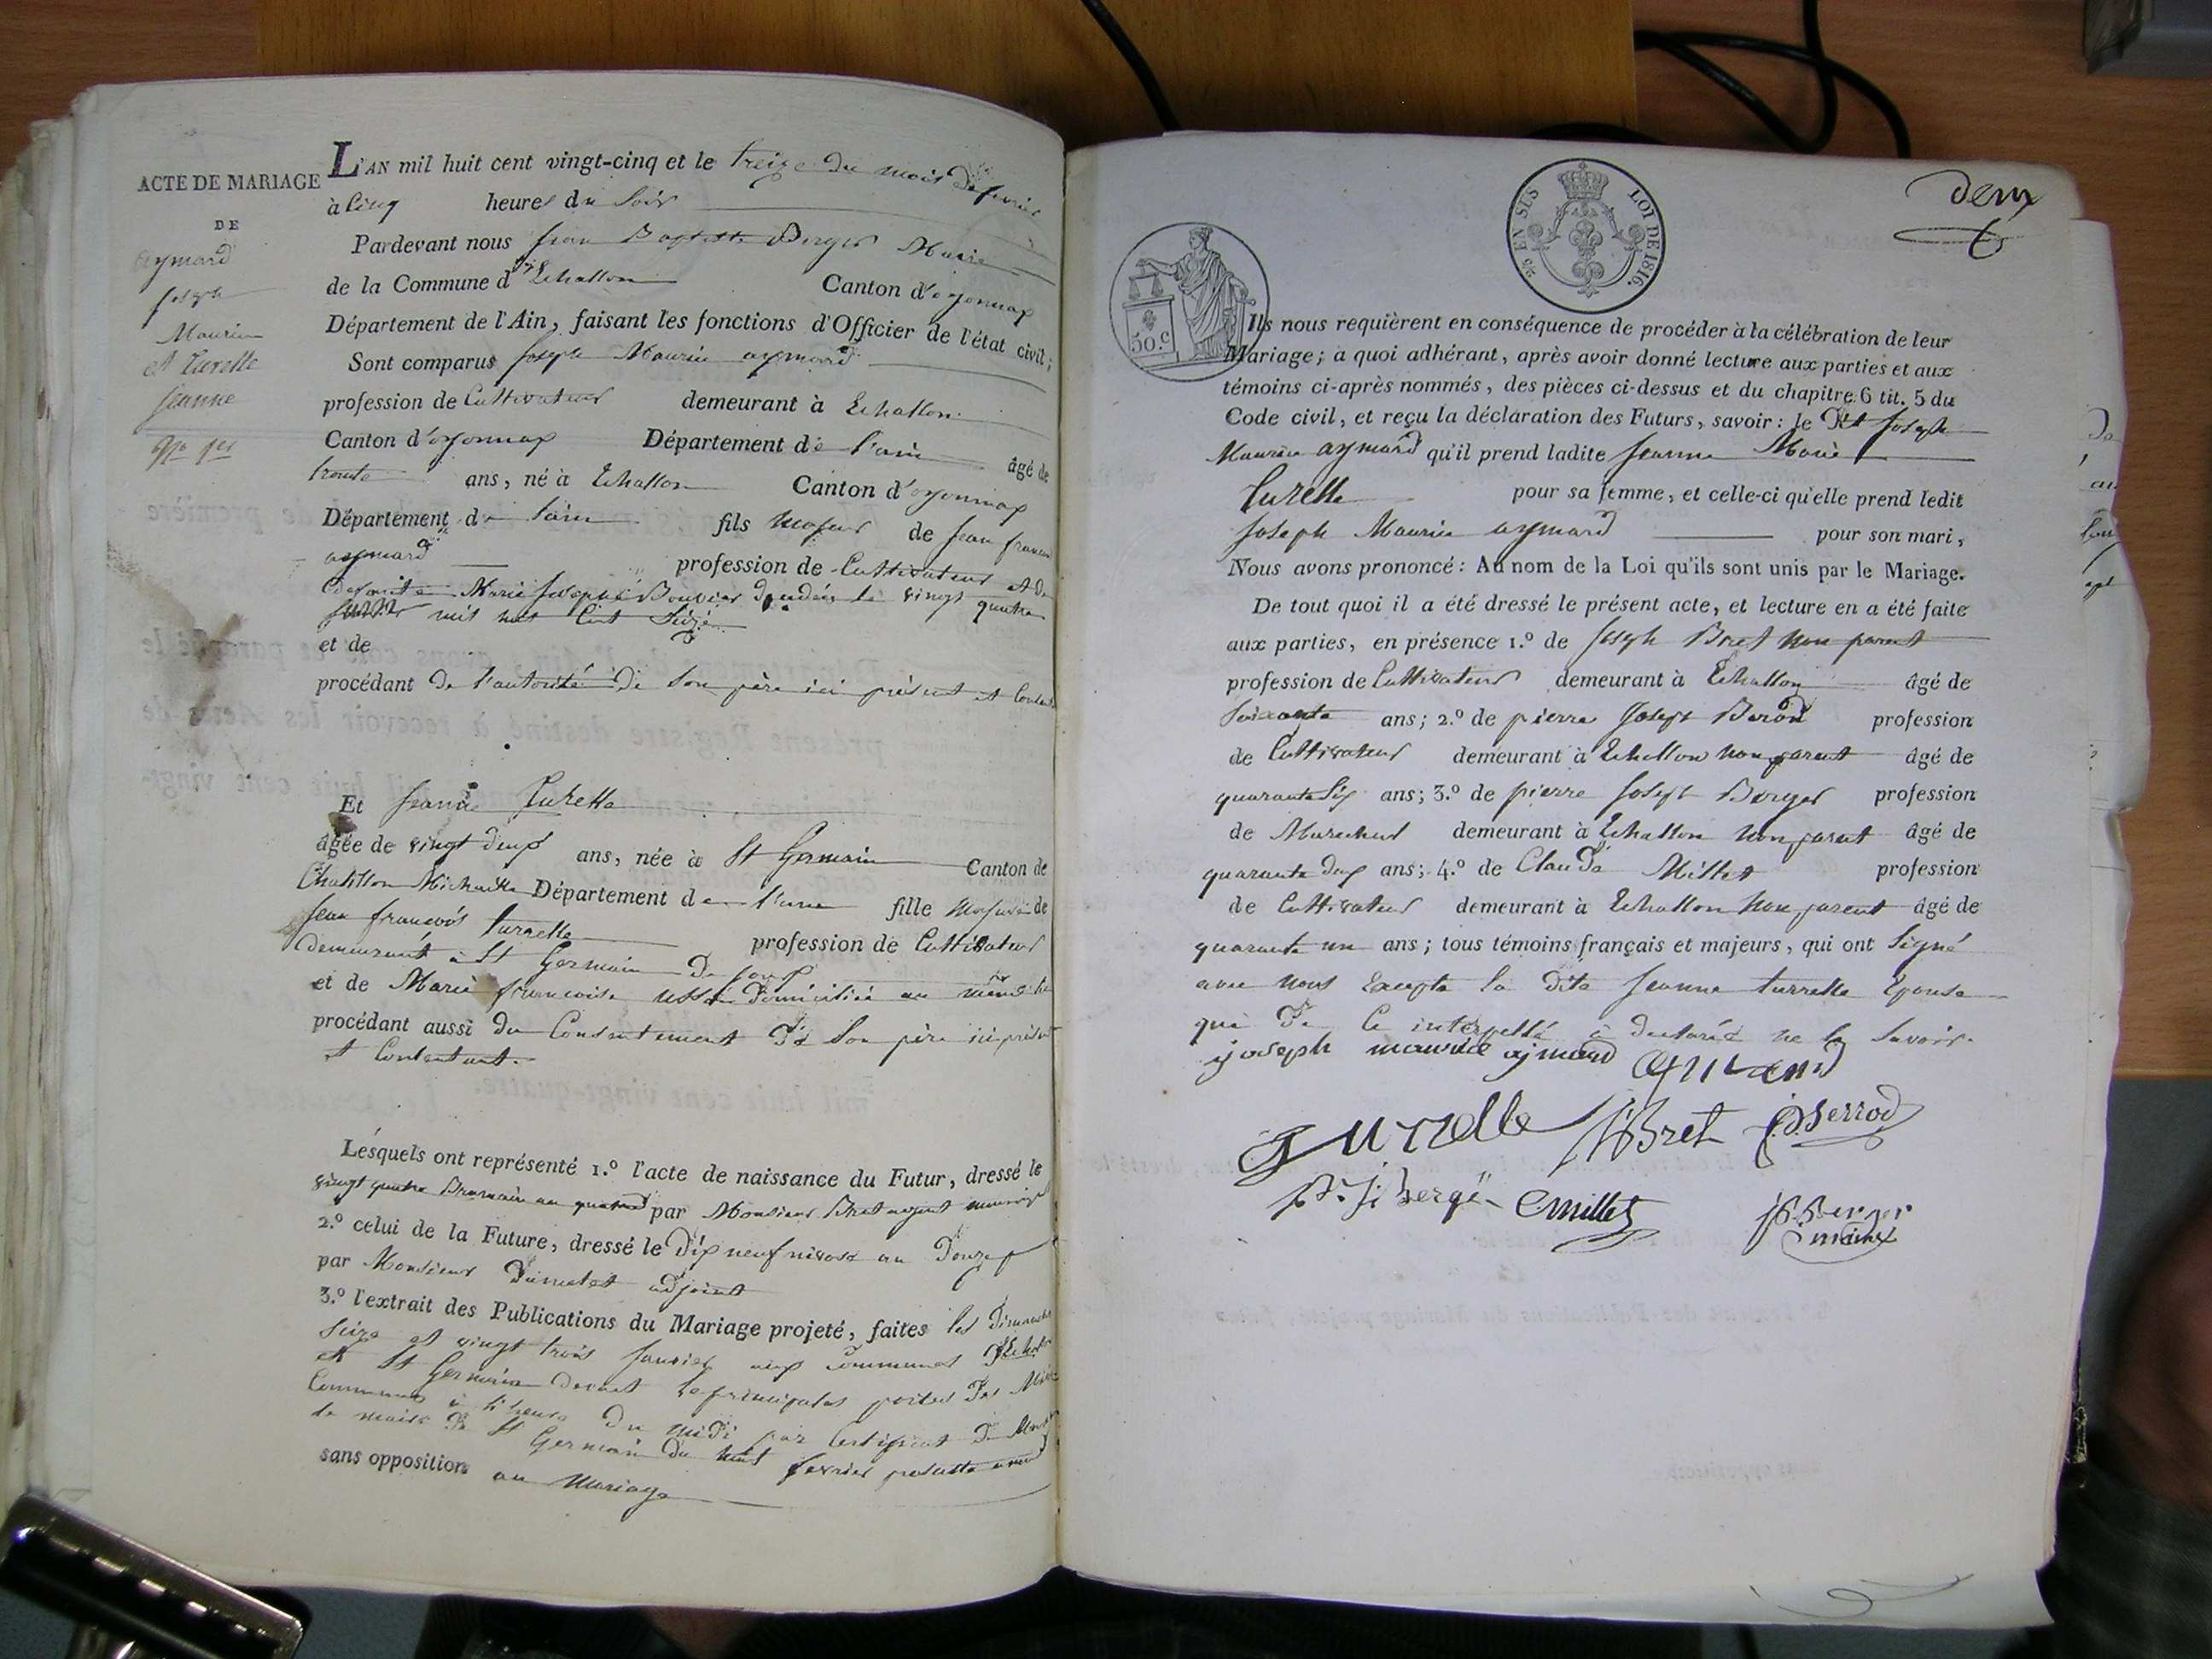 ACTE DE MARIAGE
DE
aymard
Joseph
Maurice
et Turelle
Jeanne
L'AN mil huit cent vingt-cinq et le treize du mois de fevrier
à Cinq heures du Soir
Pardevant nous Jean Baptiste Berger Maire
de la Commune d'Echallon Canton d'oyonnax
Département de l'Ain, faisant les fonctions d'Officier de l'état civil;
Sont comparus Joseph Maurice aymard
profession de Cultivateur demeurant à Echallon
Canton d'oyonnax Département de l'ain âgé de
trente ans, né à Echallon Canton d'oyonnax
Département de l'ain fils Majeur de Jean francois
aymard profession de Cultivateur et de
Defunte Marie Josephe Bouvier décédée le vingt quatre
mil huit Cent Seize
et de
procédant de l'autorité de Son père ici présent et Consentant
Et Jeanne Turelle
âgée de vingt deux ans, née à St Germain Canton de
Chatillon Michaille Département de l'ain fille Majeure de
Jean françois turrelle profession de Cultivateur
demeurant à St Germain De Joux
et de Marie françoise domiciliée au même lieu
procédant aussi du Consentement de Son père ici présent
et Consentant.
Lesquels ont représenté 1.º l'acte de naissance du Futur, dressé le
vingt quatre Brumaire an quatre par Monsieur Bret agent municipal
2.º celui de la Future, dressé le Dix neuf nivose an Douze
par Monsieur adjoint
3.º l'extrait des Publications du Mariage projeté, faites les Dimanches
Seize et vingt trois Janvier aux Communes D'Echallon
et St Germain devant les principales portes Des
Communes à l'heure Du midi par Certificat De
le maire De St Germain Du huit fevrier
sans opposition au Mariage
deux
EN SUS
LOI DE 1816.
50.c
Ils nous requièrent en conséquence de procéder à la célébration de leur
Mariage; à quoi adhérant, après avoir donné lecture aux parties et aux
témoins ci-après nommés, des pièces ci-dessus et du chapitre 6 tit. 5 du
Code civil, et reçu la déclaration des Futurs, savoir: le dit Joseph
Maurice aymard qu'il prend ladite Jeanne Marie
Turelle pour sa femme, et celle-ci qu'elle prend ledit
Joseph Maurice aymard pour son mari,
Nous avons prononcé: Au nom de la Loi qu'ils sont unis par le Mariage.
De tout quoi il a été dressé le présent acte, et lecture en a été faite
aux parties, en présence 1.º de Joseph Bret non parent
profession de Cultivateur demeurant à Echallon âgé de
Soixante ans; 2.º de pierre Joseph Berod profession
de Cultivateur demeurant à Echallon non parent âgé de
quarante Six ans; 3.º de pierre Joseph Berger profession
de Marechal demeurant à Echallon non parent âgé de
quarante deux ans; 4.º de Claude Millet profession
de Cultivateur demeurant à Echallon non parent âgé de
quarante un ans; tous témoins français et majeurs, qui ont Signé
avec nous Excepté la dite Jeanne turrelle Epouse
qui De Ce interpellé à declarée ne le Savoir.
joseph maurice aymard aymard
turelle J Bret P J Berrod
P. J. berger C millet JB Berger
maire